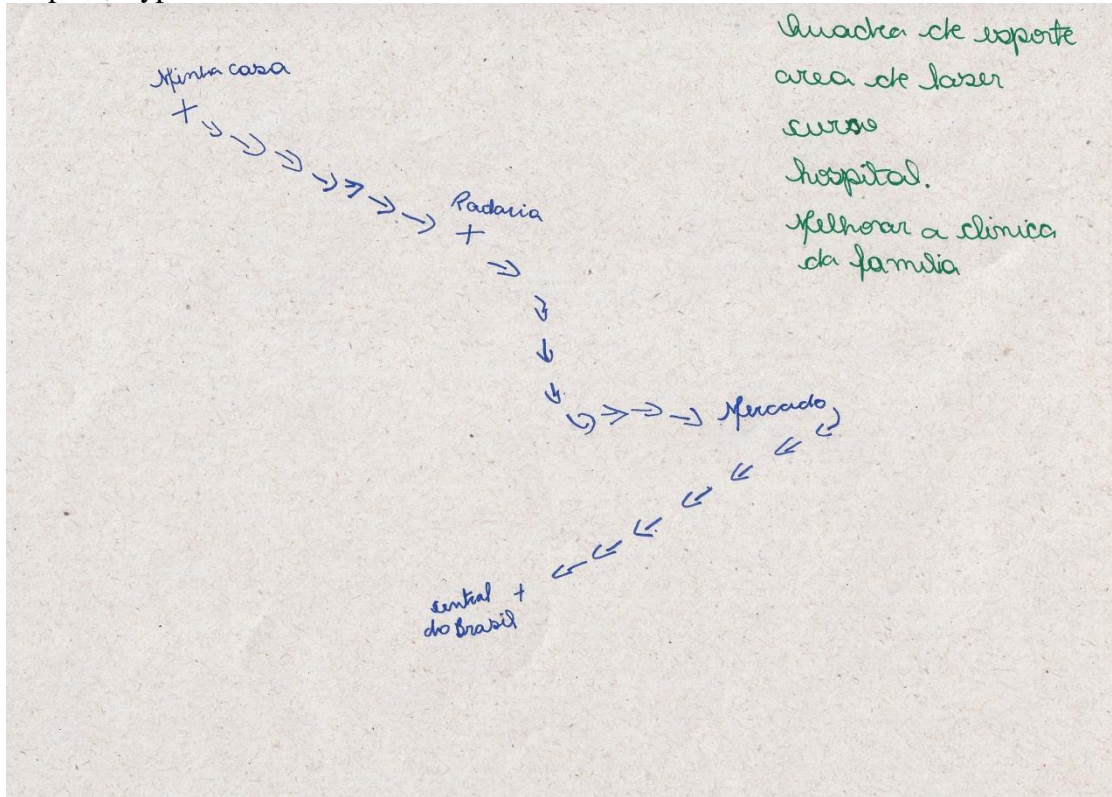 Minha casa
Padaria
Mercado
central
do Brasil
Quadra de esporte
area de lazer
curso
hospital.
Melhorar a clinica
da familia